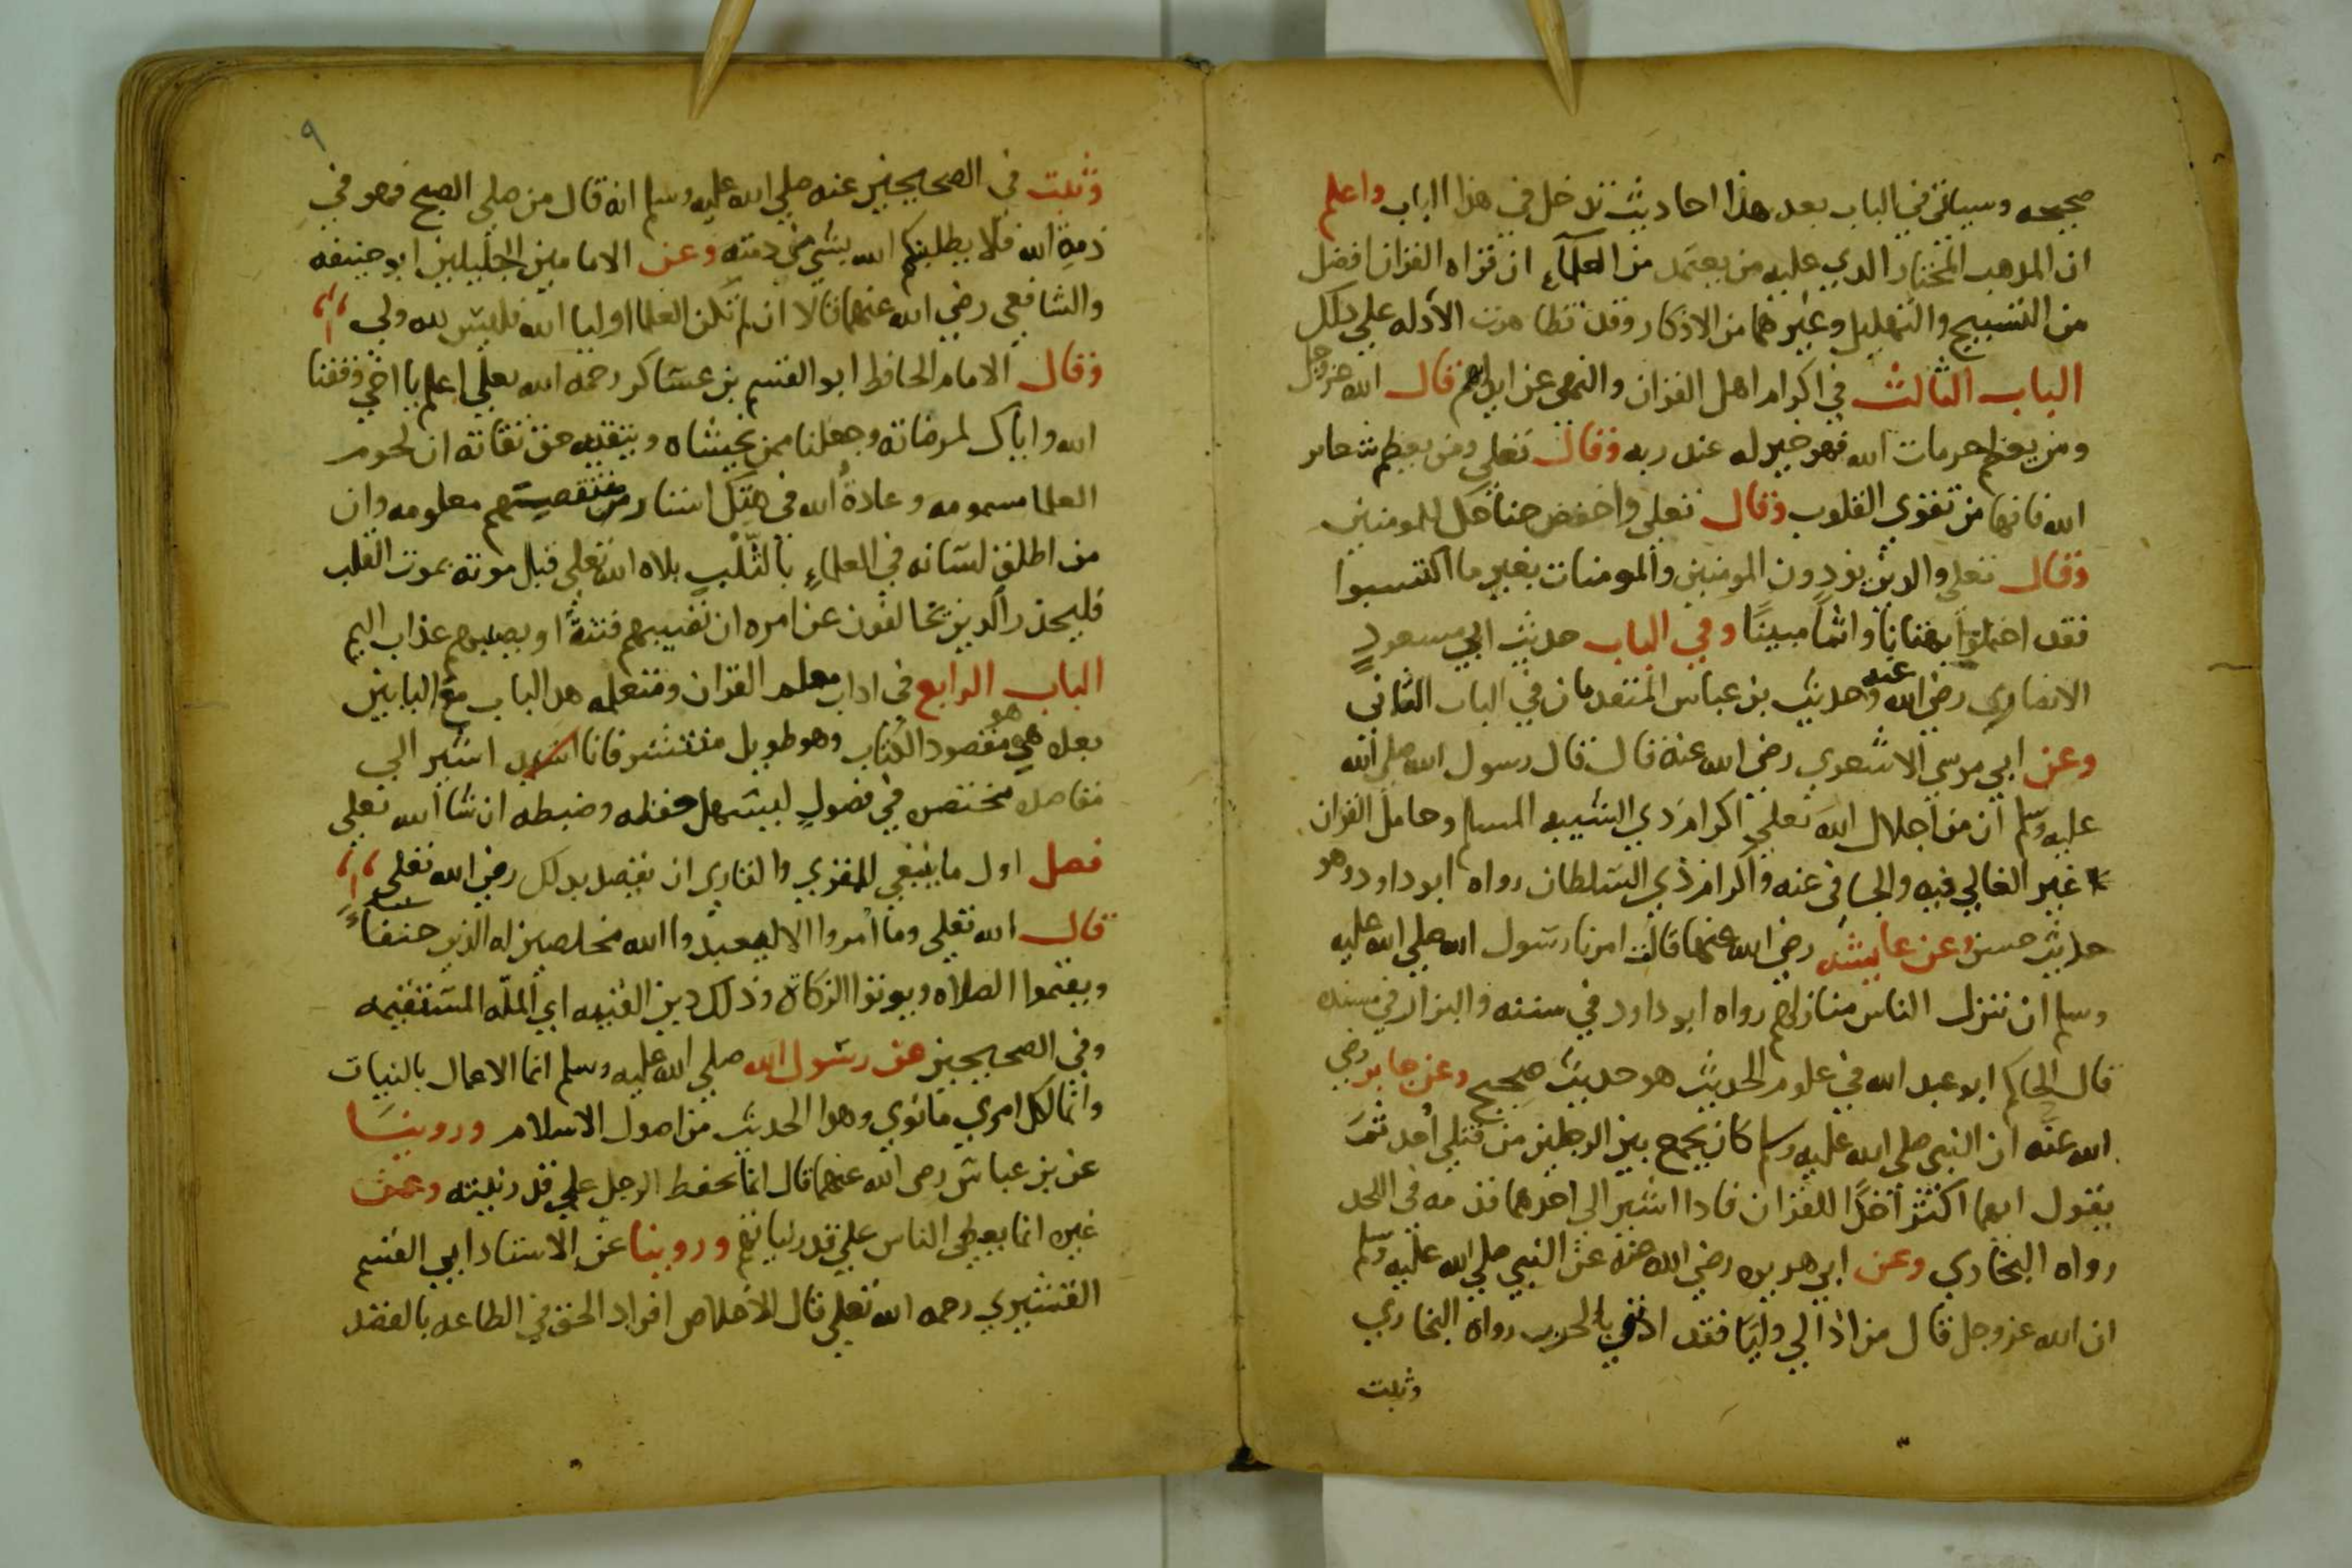 صحيحه وسياتي في الباب بعد هذا احاديث تدخل في هذا الباب واعلم
ان المذهب المختار الذي عليه من يعتمد من العلمآء ان قراه القران افضل
من التسبيح والتهليل وغيرهما من الاذكار وقد تظاهرت الأدله علي ذلك
الباب الثالث في اكرام اهل القران والنهي عن ايذاهم قال الله عز وجل
ومن يعظم حرمات الله فهو خير له عند ربه وقال تعلي ومن يعظم شعاير
الله فانها من تقوي القلوب وقال تعلي واخفض جناحك للمومنين
وقال تعلي والذين يوذون المومنين والمومنات بغير ما اكتسبوا
فقد احتملوا بهتانا واثماً مبيناً وفي الباب حديث ابي مسعودٍ
الانصاري رضي الله عنه وحديث بن عباس المتقدمان في الباب الثاني
وعن ابي موسي الاشعري رضي الله عنه قال قال رسول الله صلي الله
عليه وسلم ان من اجلال الله تعلي اكرام ذي الشيبه المسلم وحامل القران
غير الغالي فيه والجافي عنه واكرام ذي السلطان رواه ابو داود وهو
حديث حسن وعن عايشه رضي الله عنها قالت امرنا رسول الله صلي الله عليه
وسلم ان ننزل الناس منازلهم رواه ابو داود في سننه والبزار في مسنده
قال الحاكم ابو عبد الله في علوم الحديث هو حديث صحيح وعن جابر رضي
الله عنه ان النبي صلي الله عليه وسلم كان يجمع بين الرجلين من قتلي أحد ثم
يقول ايهما اكثر أخذًا للقران فاذا اشير الي احدهما قدمه في اللحد
رواه البخاري وعن ابي هريره رضي الله عنه عن النبي صلي الله عليه وسلم
ان الله عز وجل قال من اذا لي وليًا فقد اذنني بالحرب رواه البخاري
وثبت
٩
وثبت في الصحيحين عنه صلي الله عليه وسلم انه قال من صلي الصبح فهو في
ذمة الله فلا يطلبنكم الله بشي من ذمته وعن الامامين الجليلين ابو حنيفه
والشافعي رضي الله عنهما قالا ان لم تكن العلما اوليا الله فليس لله ولي
وقال الامام الحافظ ابو القسم بن عساكر رحمه الله تعلي اعلم يا اخي وفقنا
الله واياك لمرضاته وجعلنا ممن يخشاه ويتقيه حق تقاته ان لحوم
العلما مسمومه وعادةُ الله في هتك استار منتقصيهم معلومه وان
من اطلق لسانه في العلماءِ بالثَّلْبِ بلاه الله تعلي قبل موته بموت القلب
فليحذر الذين يخالفون عن امره ان تصيبهم فتنةٌ او يصيبهم عذاب اليم
الباب الرابع في اداب معلم القران ومتعلمه هذا الباب مع البابين
بعده هو مقصود الكتاب وهو طويل منتشر فانا اشير الي
مقاصده مختصره في فصولٍ ليسهل حفظه وضبطه ان شا الله تعلي
فصل اول ما ينبغي للمقري والقاري ان يقصد بذلك رضي الله تعلي
قال الله تعلي وما امروا الا ليعبدوا الله مخلصين له الدين حنفاء
ويقيموا الصلاه ويوتوا الزكاة وذلك دين القيمه اي المله المستقيمه
وفي الصحيحين عن رسول الله صلي الله عليه وسلم انما الاعمال بالنيات
وانما لكل امري ما نوي وهذا الحديث من اصول الاسلام وروينا
عن بن عباس رضي الله عنهما قال انما يحفظ الرجل علي قدر نيته وعن
غيره انما يعطي الناس علي قدر نياتهم وروينا عن الاستاد ابي القسم
القشيري رحمه الله تعلي قال الاخلاص افراد الحق في الطاعه بالقصد